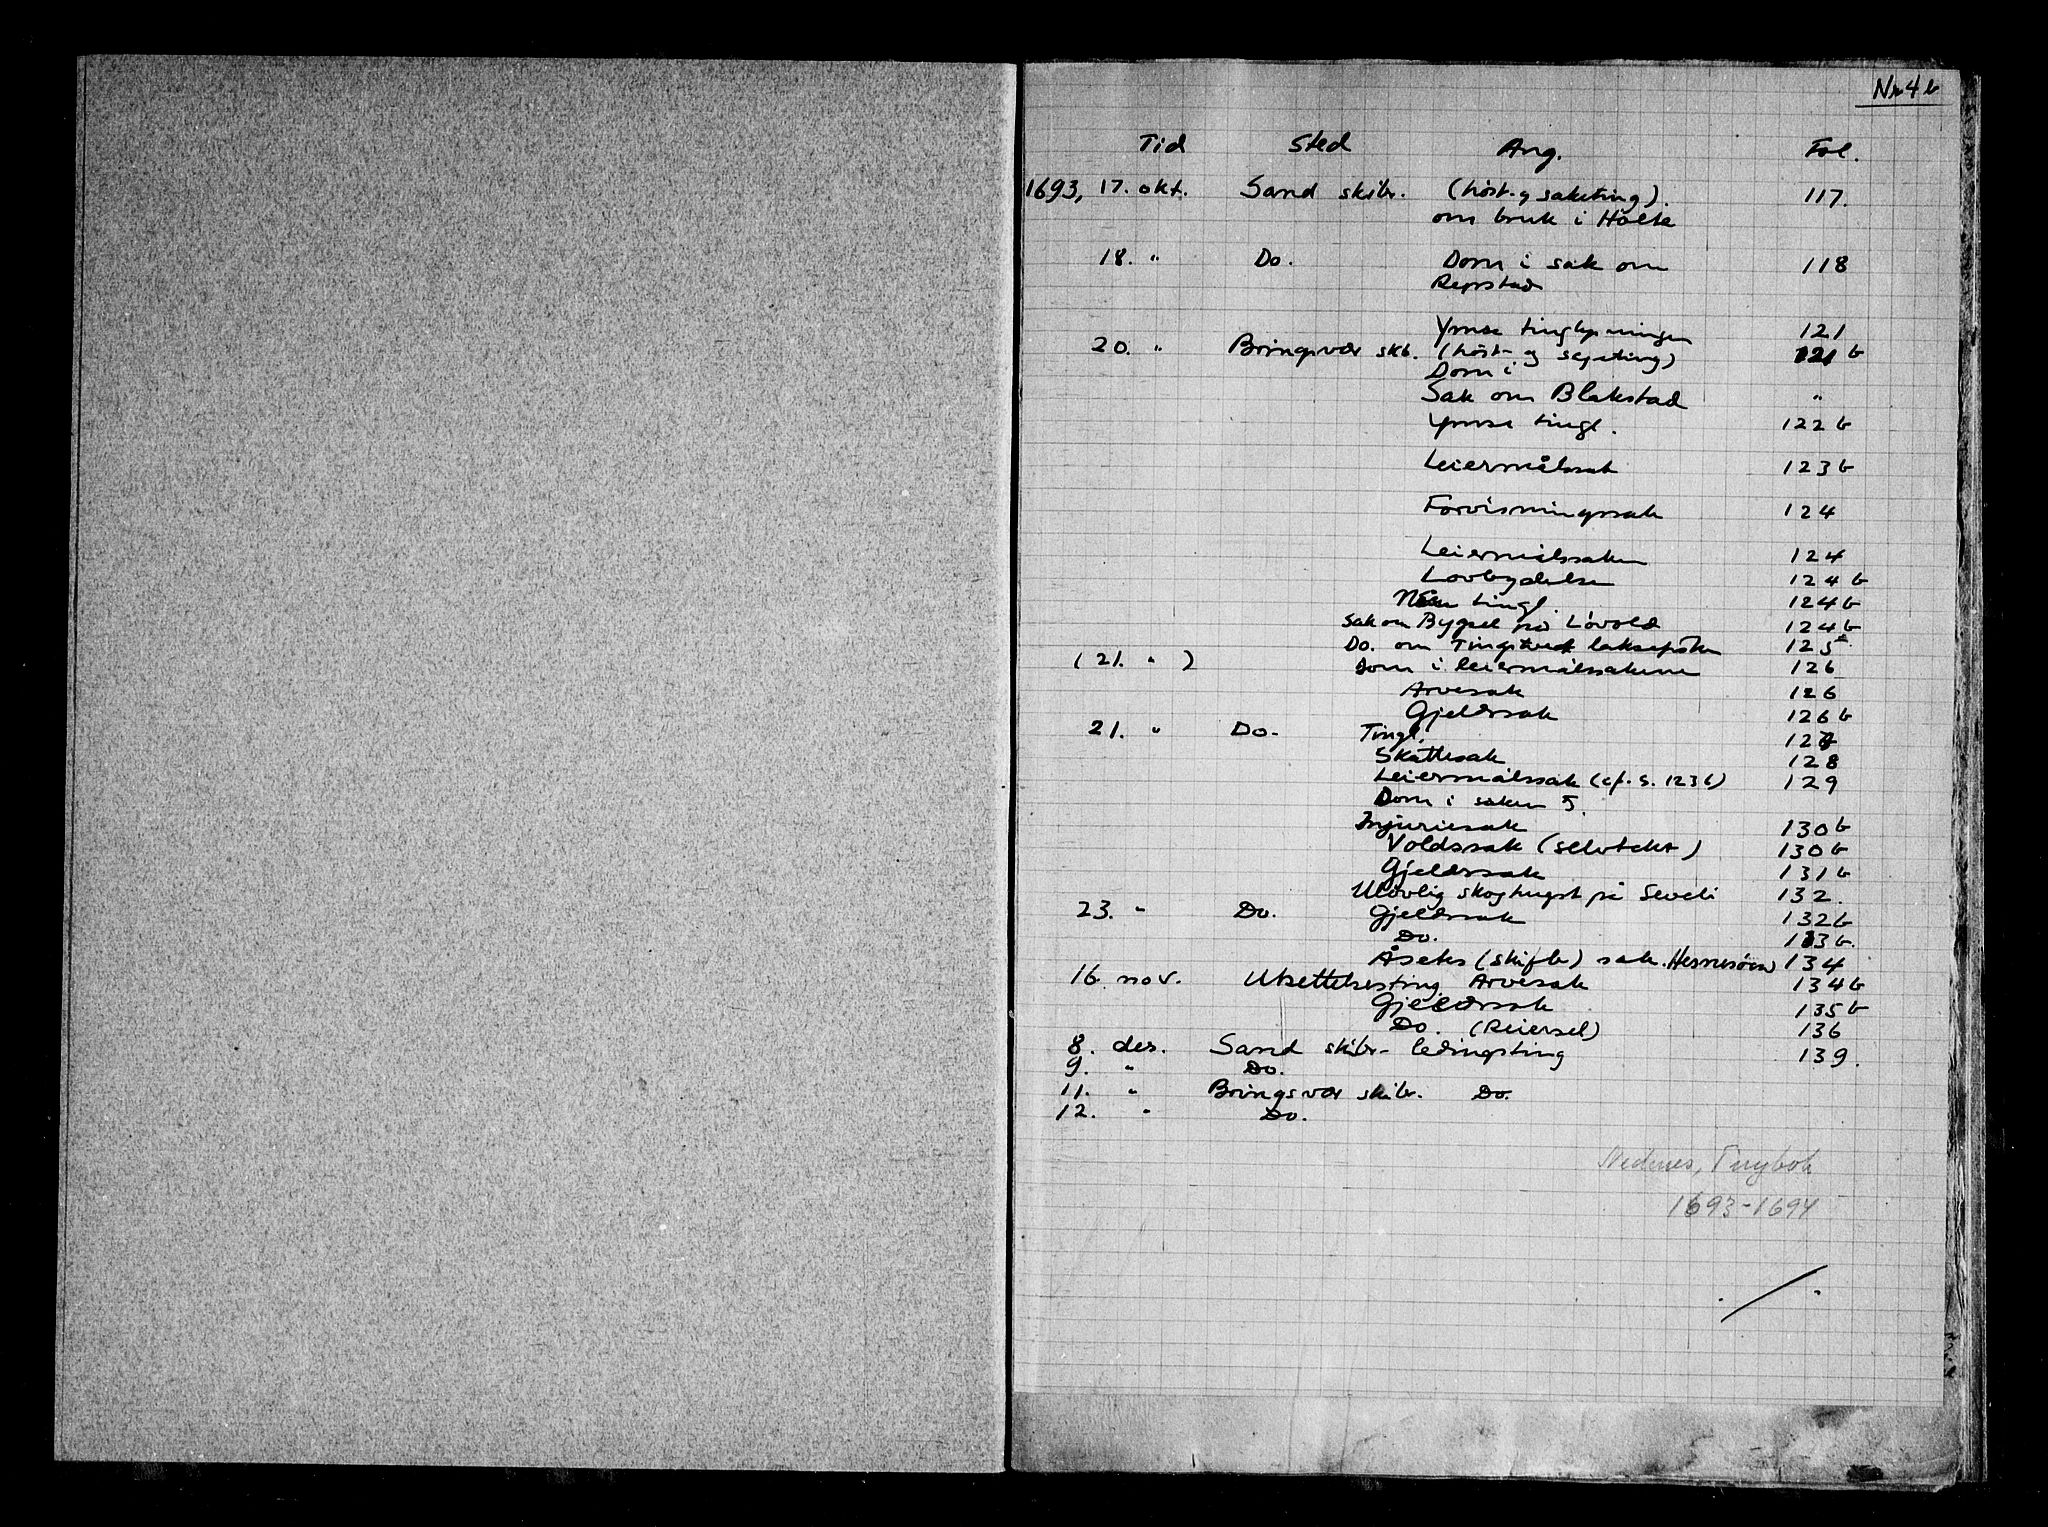 Nr 4 b
Tid Sted Ang. Fol.
1693, 17. okt. Sand skibr. (höst- og saketing). 117.
om bruk i Holte
18. " Do. Dom i sak om 118
Repstad
Ymse tinglysninger 121
20. " Bringsvær skb. (höst- og sageting) 121 b
Dom i
Sak om Blakstad "
Ymse tingl. 122 b
Leiermålssak 123 b
Forvisningssak 124
Leiermålssaken 124
Lovbydelse 124 b
tingl. 124 b
Sak om Bygsel på Lövold 124 b
Do. om Tingstveit laksefiske 125
(21. " ) Dom i leiermålssakene 126
Arvesak 126
Gjeldssak 126 b
21. " Do. Tingl. 127
Skattesak 128
Leiermålssak (cf. s. 123 b) 129
Dom i saken
Injuriesak 130 b
Voldssak (selvtekt) 130 b
Gjeldssak 131 b
Ulovlig skoghugst på 132.
23. " Do. Gjeldssak 132 b
Do. 133 b.
Åsetes (skifte) sak. 134
16. nov. Utsettelsesting Arvesak 134 b
Gjeldssak 135 b
Do. (Reiersel) 136
8. des. Sand skibr- ledingsting 139.
9. " Do.
11. " Bringsvær skibr. Do.
12. " Do.
Nedenes, Tingbok
1693-1694